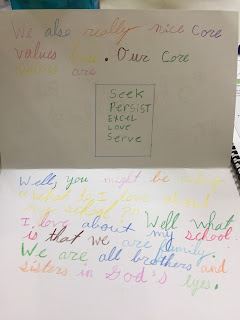 We also really nice Core
values too. Our Core
values are
Seek
Persist
Excel
Love
Serve
Well, you might be asking
what do I love about
my school
Well what
I love about my school
is that we are family.
We are all brothers and
sisters in God's eyes.